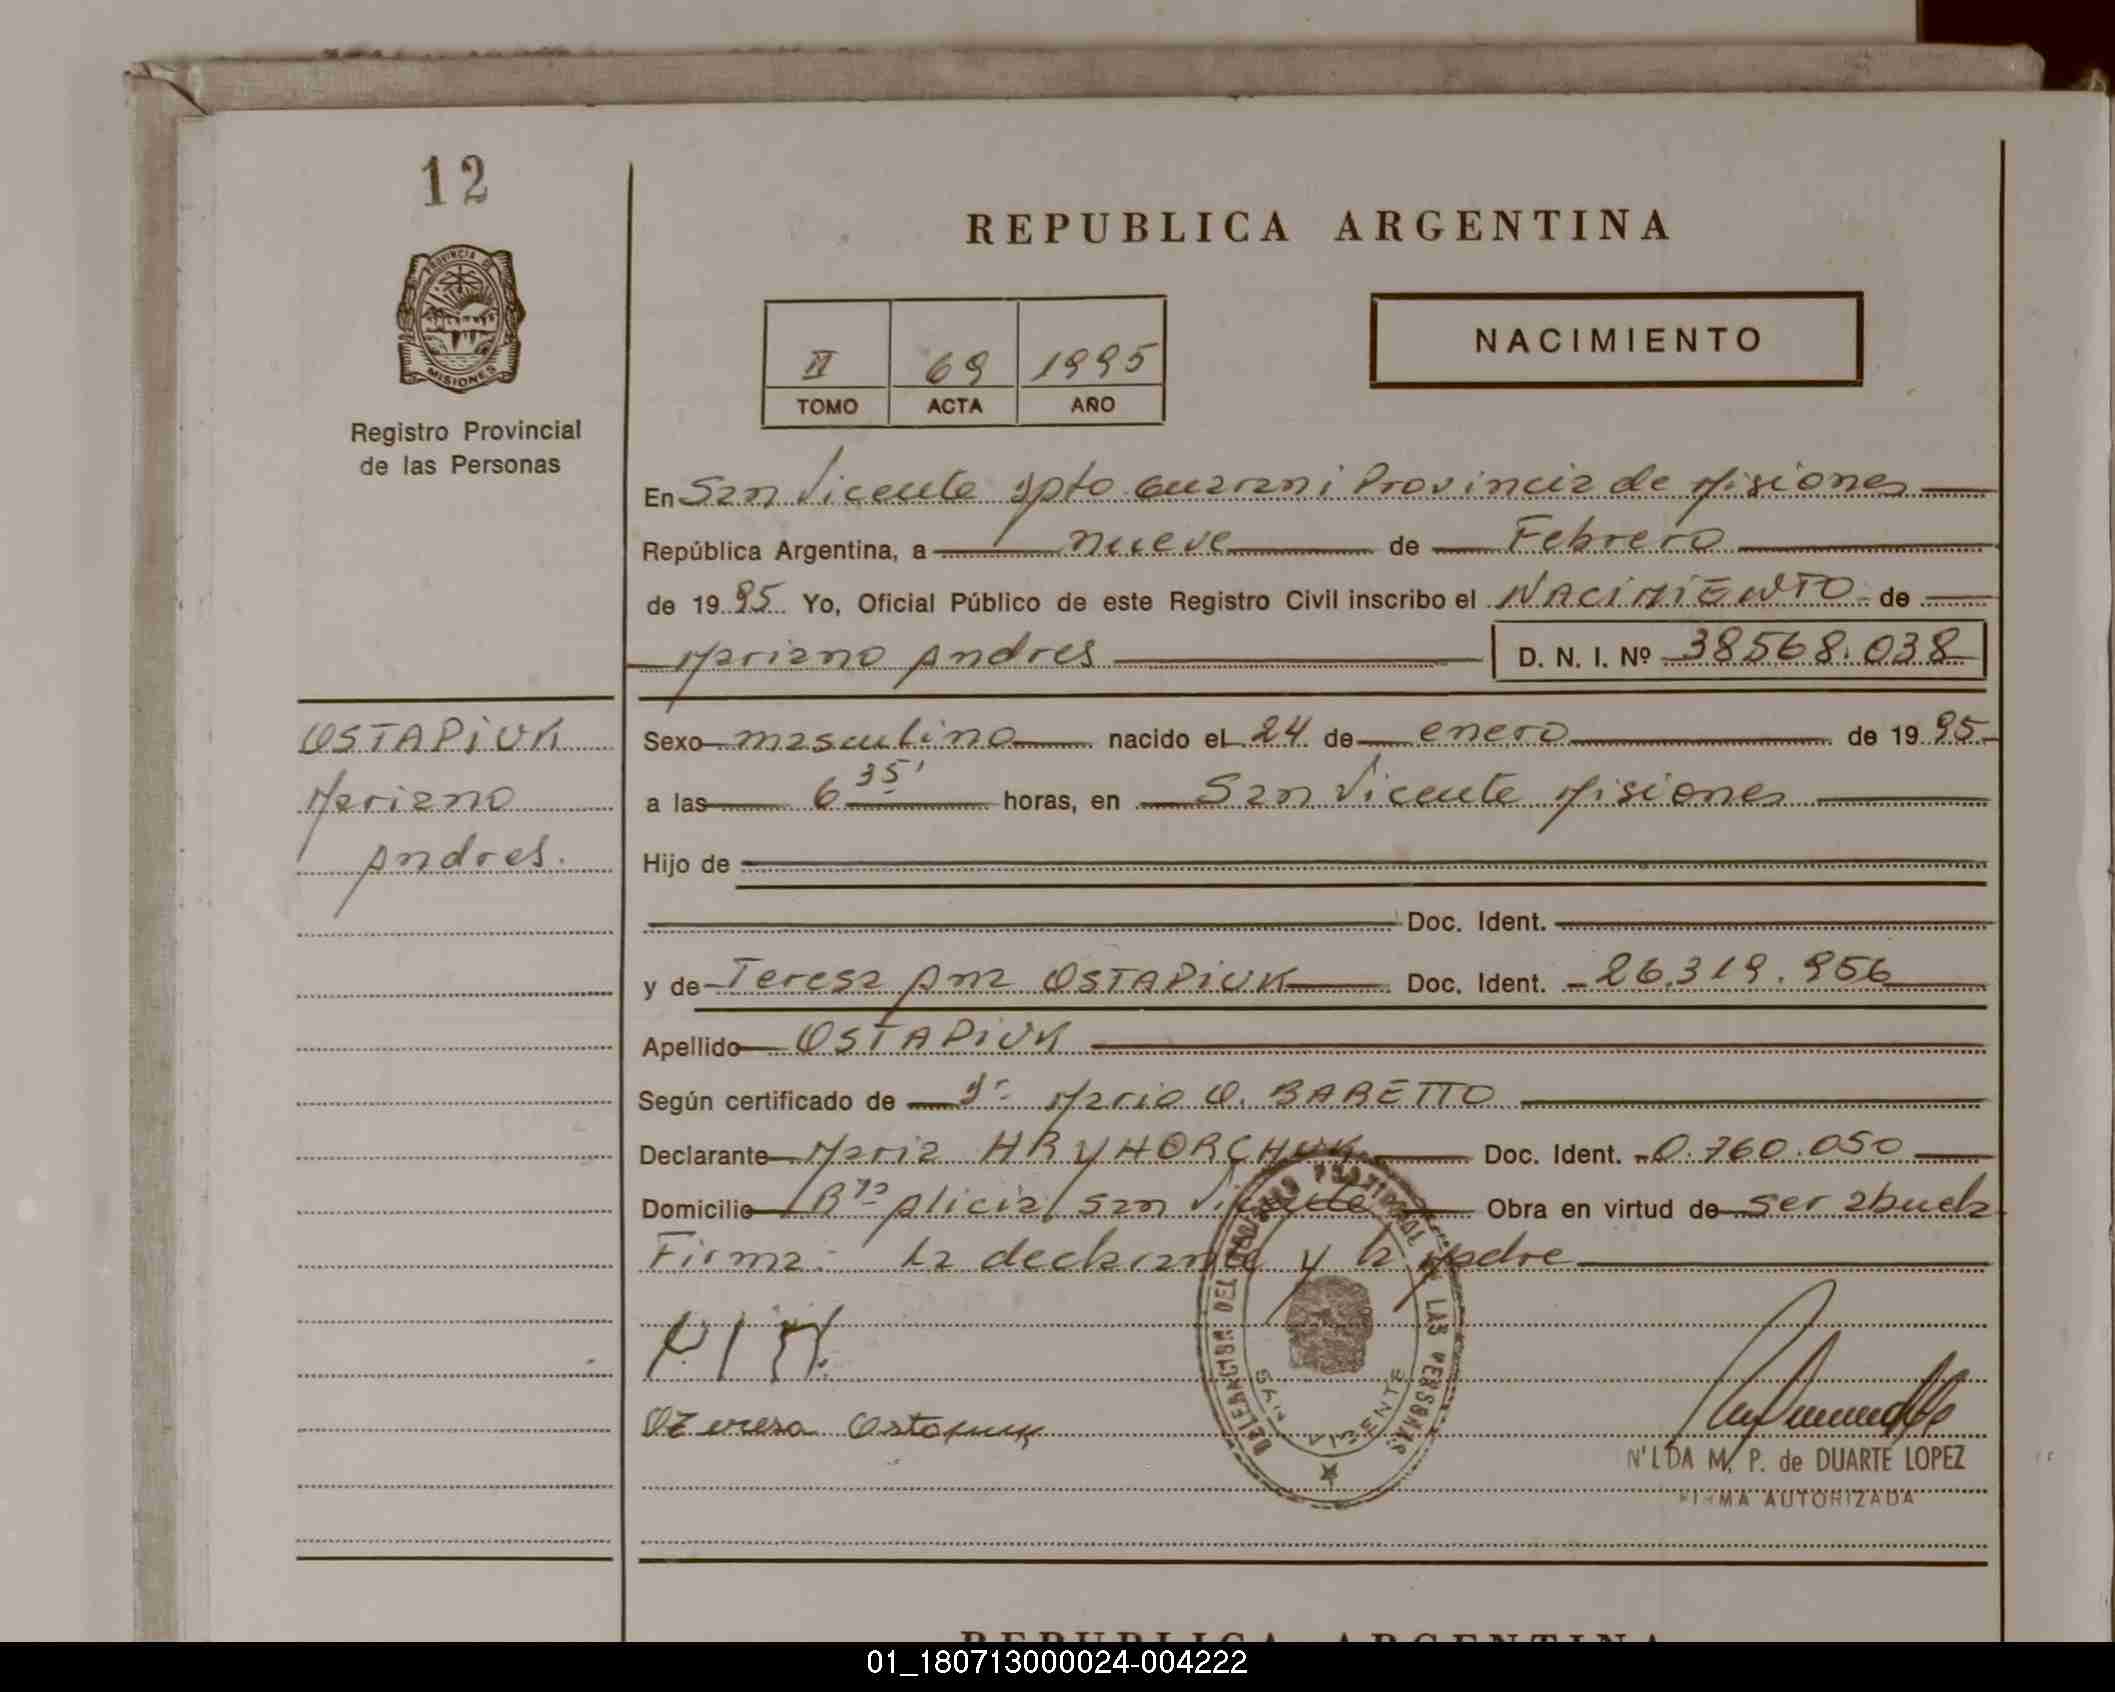 12
REPUBLICA ARGENTINA
PROVINCIA DE
MISIONES
Registro Provincial
de las Personas
II 69 1995
TOMO ACTA AÑO
NACIMIENTO
En San Vicente Dpto Guarani Provincia de Misiones
República Argentina, a nueve de Febrero
de 1995 Yo, Oficial Público de este Registro Civil inscribo el NACIMIENTO de
Mariano Andres D. N. I. Nº 38568.038
OSTAPIUK
Mariano
Andres.
Sexo masculino nacido el 24 de enero de 1995
a las 6 35' horas, en San Vicente Misiones
Hijo de
Doc. Ident.
y de Teresa Ana OSTAPIUK Doc. Ident. 26.319.956
Apellido OSTAPIUK
Según certificado de Dr Mario O. BARETTO
Declarante Maria HRYHORCHUK Doc. Ident. 0.760.050
Domicilio Bno Alicia, San Vicente Obra en virtud de ser abuela
Firma: la declarante y la madre
Teresa Ostapiuk
DELEGACION DEL LAS PERSONAS
SAN VICENTE
N'LDA M. P. de DUARTE LOPEZ
FIRMA AUTORIZADA
REPUBLICA ARGENTINA
01_180713000024-004222